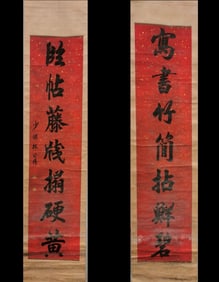 寫書竹簡拈鮮碧
臨帖藤牋搨硬黃
少